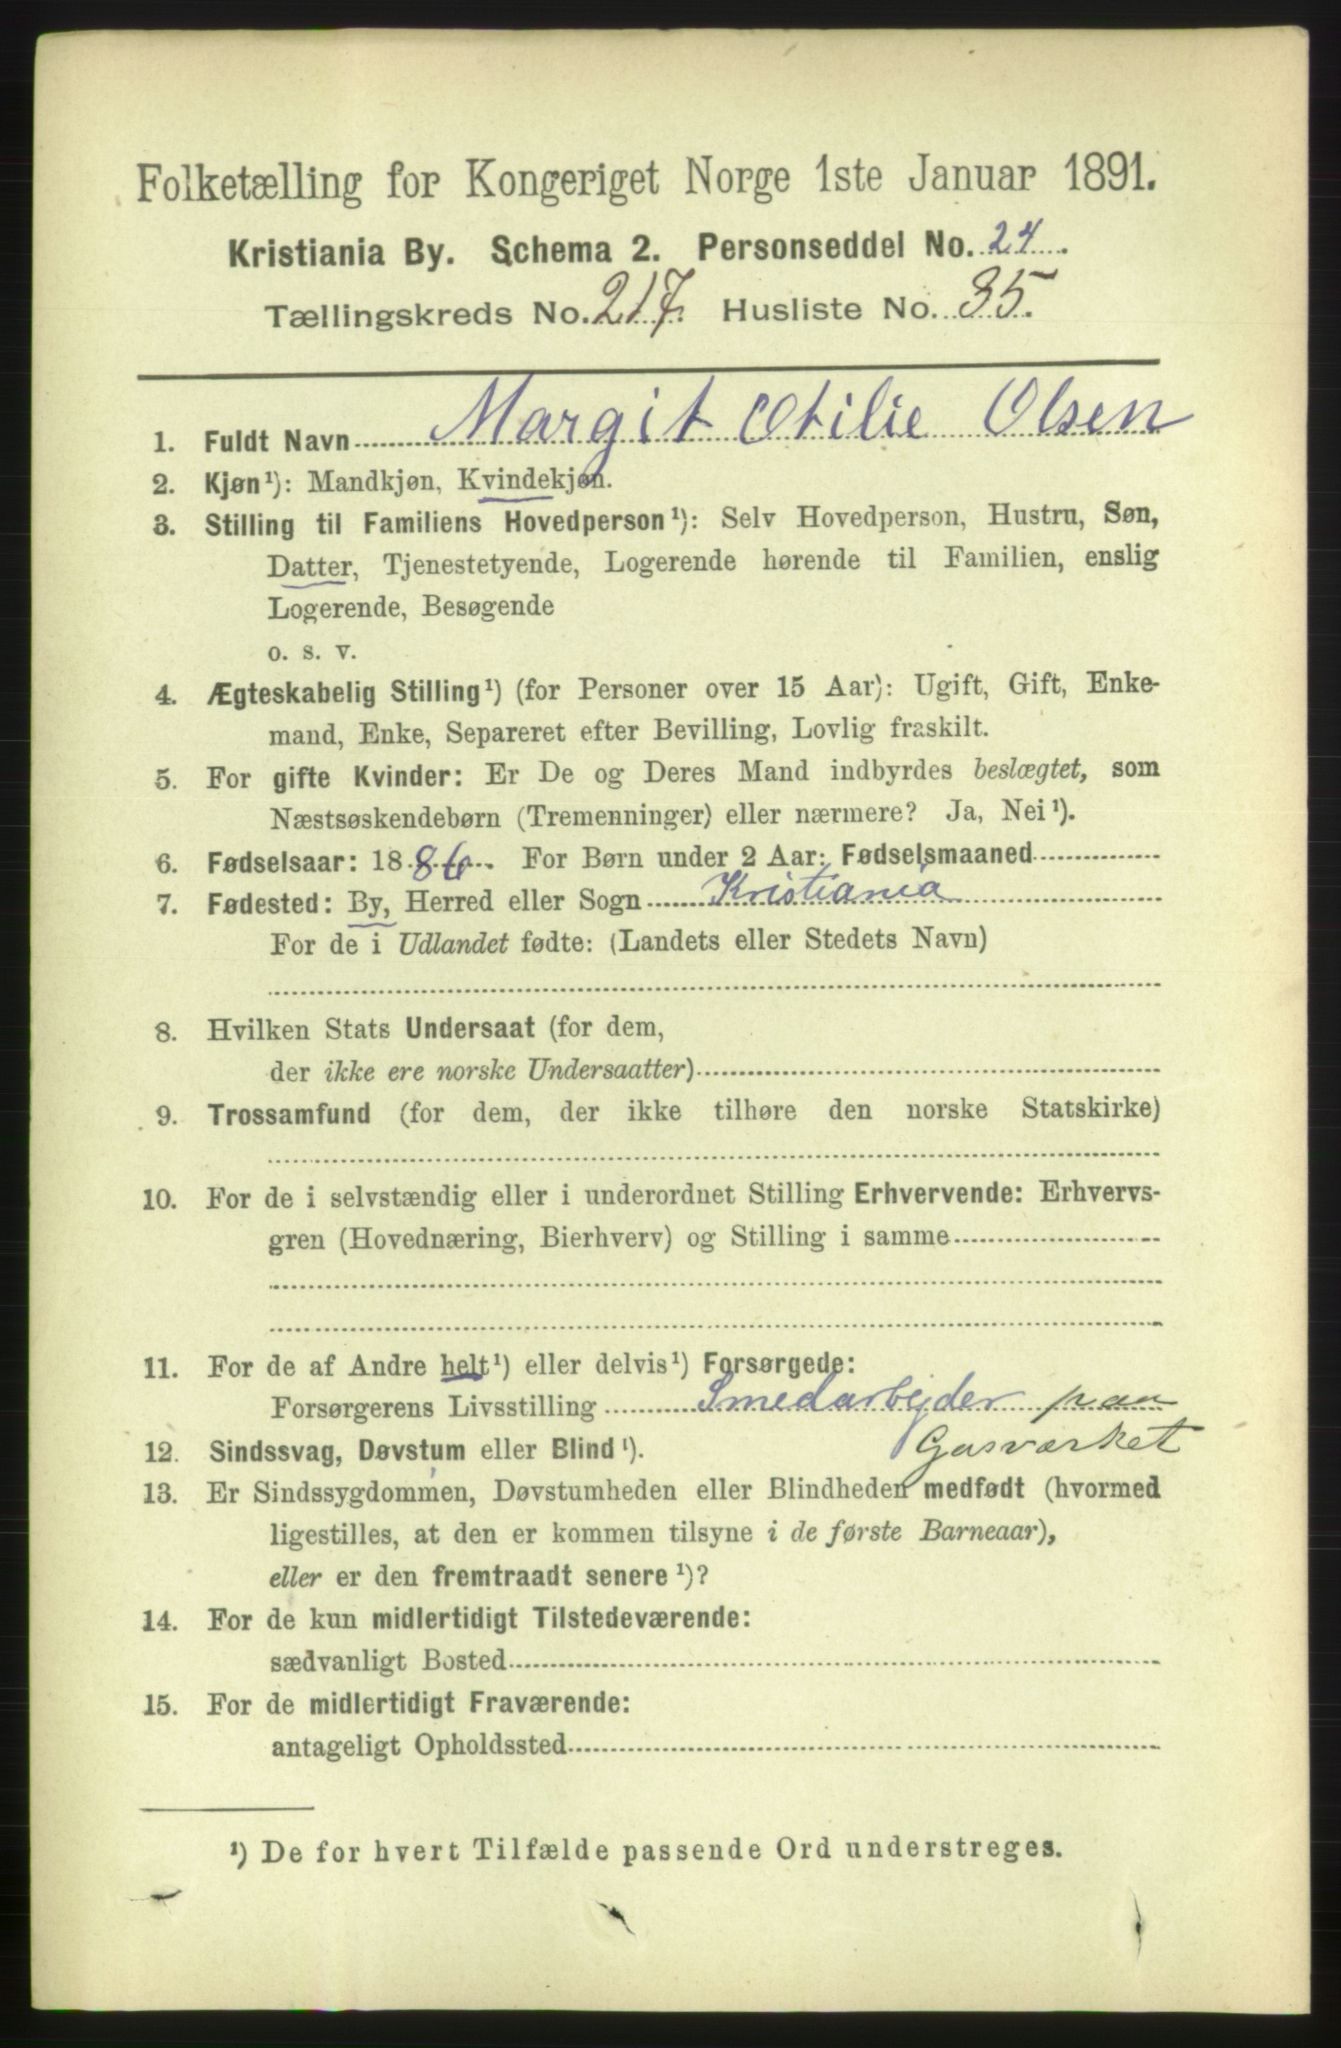 Folketælling for Kongeriget Norge 1ste Januar 1891.
Kristiania By. Schema 2. Personseddel No. 24.
Tællingskreds No. 217. Husliste No. 35.
1. Fuldt Navn Margit Otilie Olsen
2. Kjøn¹): Mandkjøn, Kvindekjøn.
3. Stilling til Familiens Hovedperson¹): Selv Hovedperson, Hustru, Søn,
Datter, Tjenestetyende, Logerende hørende til Familien, enslig
Logerende, Besøgende
o. s. v.
4. Ægteskabelig Stilling¹) (for Personer over 15 Aar): Ugift, Gift, Enke-
mand, Enke, Separeret efter Bevilling, Lovlig fraskilt.
5. For gifte Kvinder: Er De og Deres Mand indbyrdes beslægtet, som
Næstsøskendebørn (Tremenninger) eller nærmere? Ja, Nei¹).
6. Fødselsaar: 1886. For Børn under 2 Aar: Fødselsmaaned
7. Fødested: By, Herred eller Sogn Kristiania
For de i Udlandet fødte: (Landets eller Stedets Navn)
8. Hvilken Stats Undersaat (for dem,
der ikke ere norske Undersaatter)
9. Trossamfund (for dem, der ikke tilhøre den norske Statskirke)
10. For de i selvstændig eller i underordnet Stilling Erhvervende: Erhvervs-
gren (Hovednæring, Bierhverv) og Stilling i samme
11. For de af Andre helt¹) eller delvis¹) Forsørgede:
Forsørgerens Livsstilling Smedarbejder paa
Gasværket
12. Sindssvag, Døvstum eller Blind¹).
13. Er Sindssygdommen, Døvstumheden eller Blindheden medfødt (hvormed
ligestilles, at den er kommen tilsyne i de første Barneaar),
eller er den fremtraadt senere¹)?
14. For de kun midlertidigt Tilstedeværende:
sædvanligt Bosted
15. For de midlertidigt Fraværende:
antageligt Opholdssted
¹) De for hvert Tilfælde passende Ord understreges.